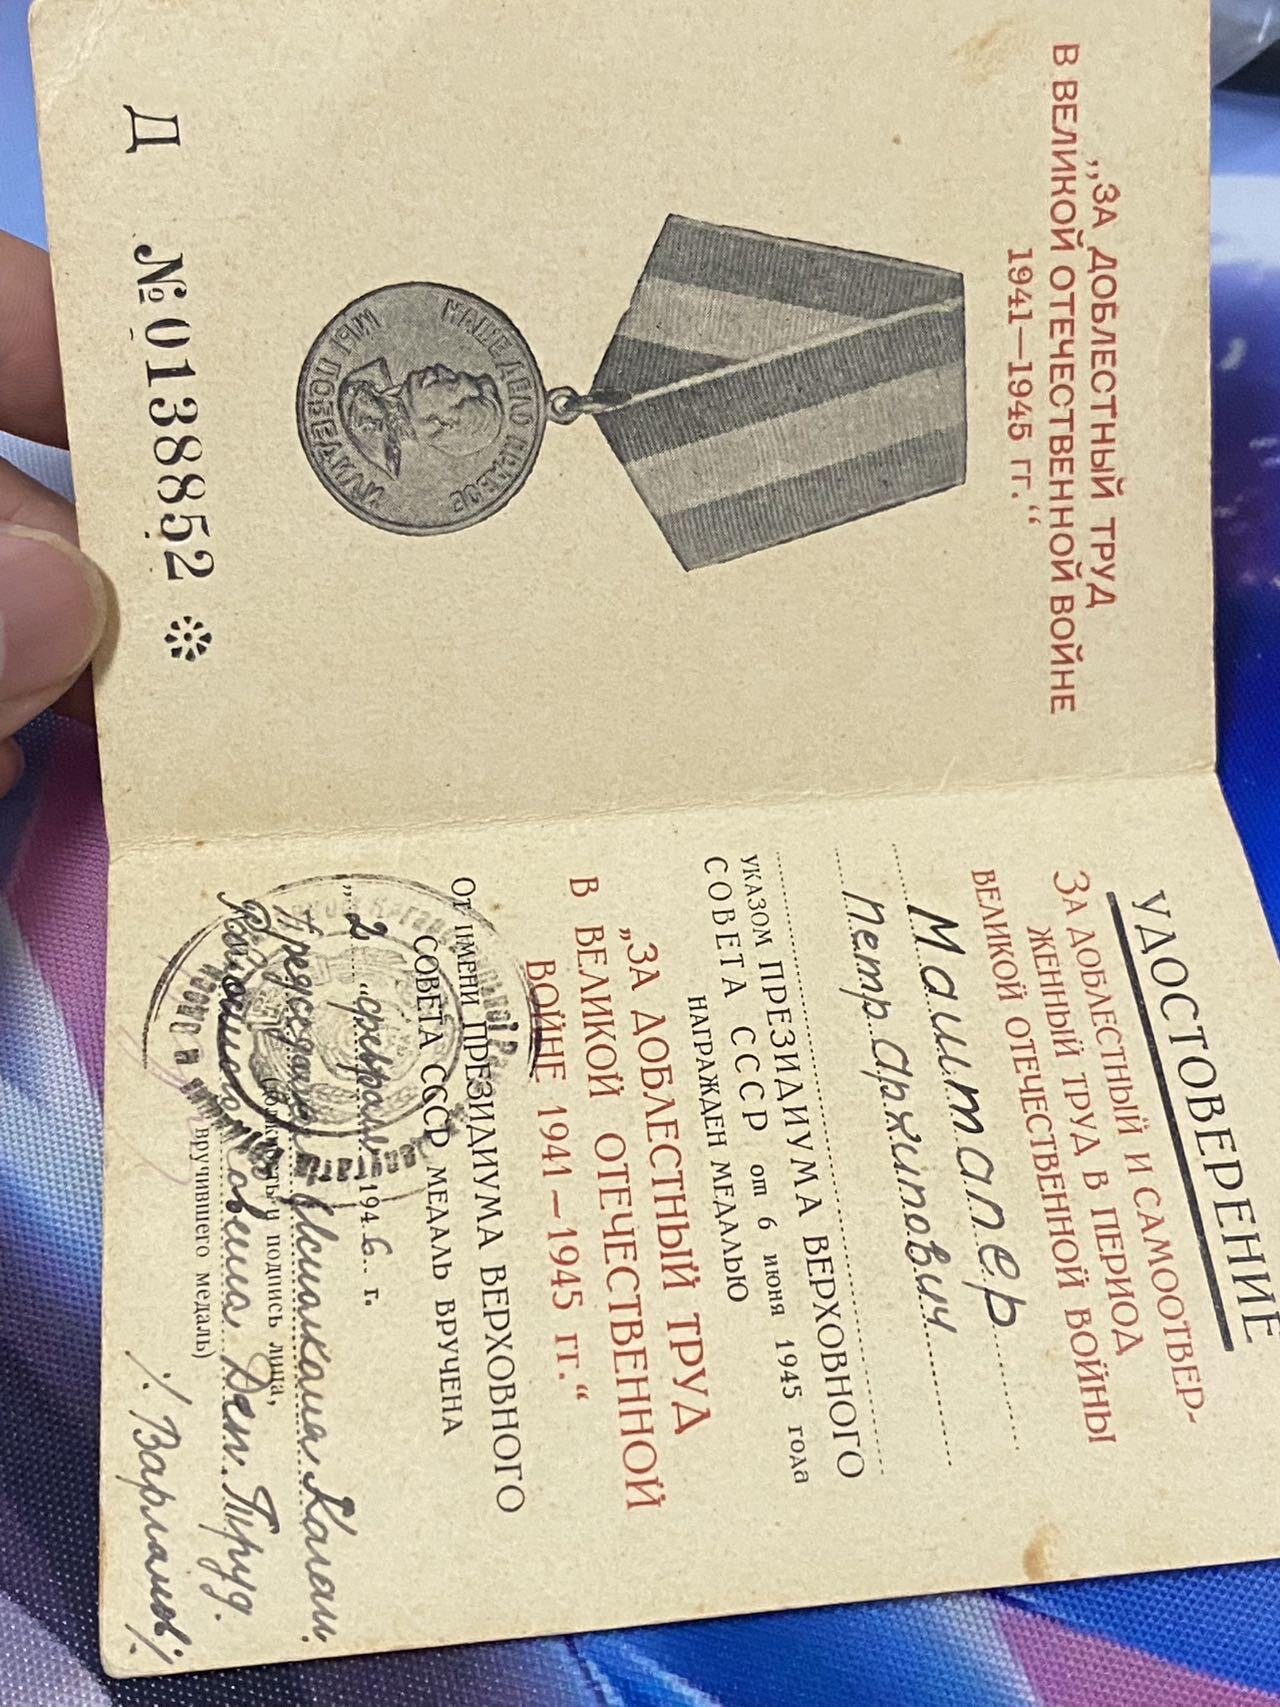 „ЗА ДОБЛЕСТНЫЙ ТРУД
В ВЕЛИКОЙ ОТЕЧЕСТВЕННОЙ ВОЙНЕ
1941—1945 гг.“
НАШЕ ДЕЛО ПРАВОЕ
МЫ ПОБЕДИЛИ
Д №0138852
УДОСТОВЕРЕНИЕ
ЗА ДОБЛЕСТНЫЙ И САМООТВЕР-
ЖЕННЫЙ ТРУД В ПЕРИОД
ВЕЛИКОЙ ОТЕЧЕСТВЕННОЙ ВОЙНЫ
Маштапер
Петр Архипович
УКАЗОМ ПРЕЗИДИУМА ВЕРХОВНОГО
СОВЕТА СССР от 6 июня 1945 года
НАГРАЖДЕН МЕДАЛЬЮ
„ЗА ДОБЛЕСТНЫЙ ТРУД
В ВЕЛИКОЙ ОТЕЧЕСТВЕННОЙ
ВОЙНЕ 1941—1945 гг.“
От ИМЕНИ ПРЕЗИДИУМА ВЕРХОВНОГО
СОВЕТА СССР МЕДАЛЬ ВРУЧЕНА
„2“ февраля 1946 г.
Председатель Исполкома Каган.
и подпись лица,
Районного Совета Деп. Труд.
вручившего медаль)
/. Варламов/.